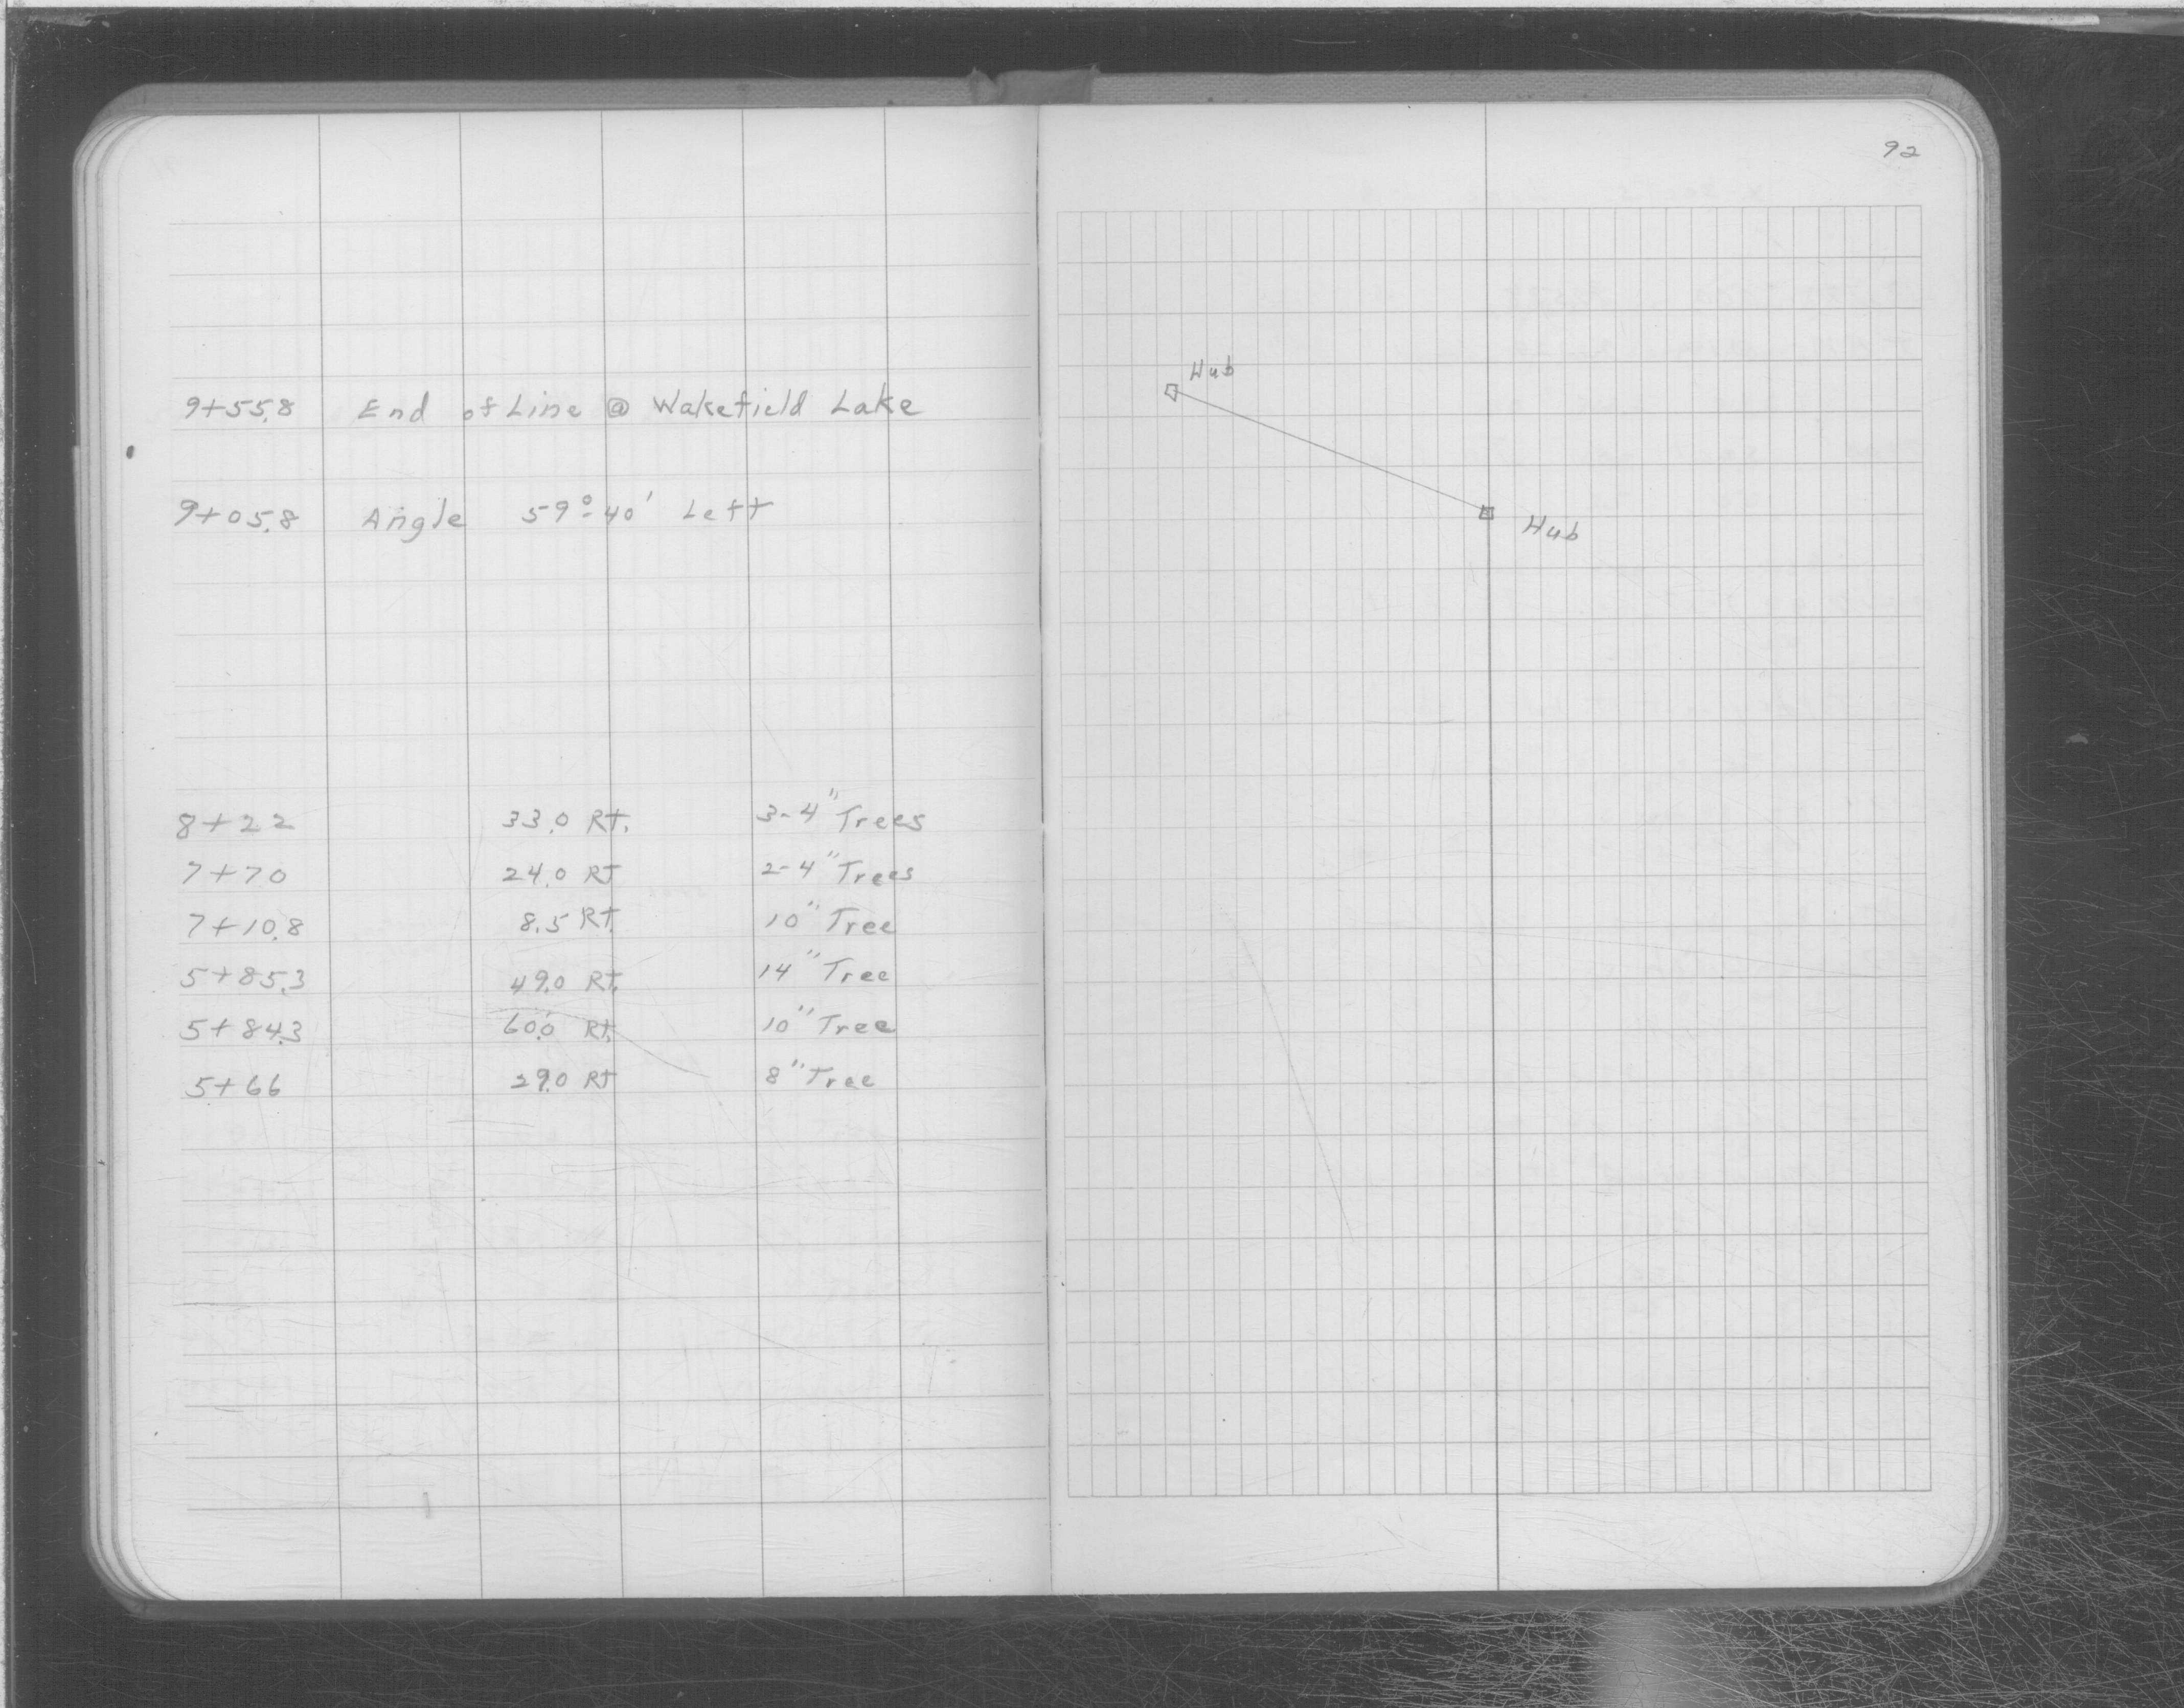 92
9+55.8 End of Line @ Wakefield Lake
9+05.8 Angle 59°-40' Left
8+22 33.0 Rt. 3-4" Trees
7+70 24.0 Rt 2-4" Trees
7+10.8 8.5 Rt. 10" Tree
5+85.3 49.0 Rt. 14" Tree
5+84.3 60.0 Rt. 10" Tree
5+66 29.0 Rt 8" Tree
Hub
Hub